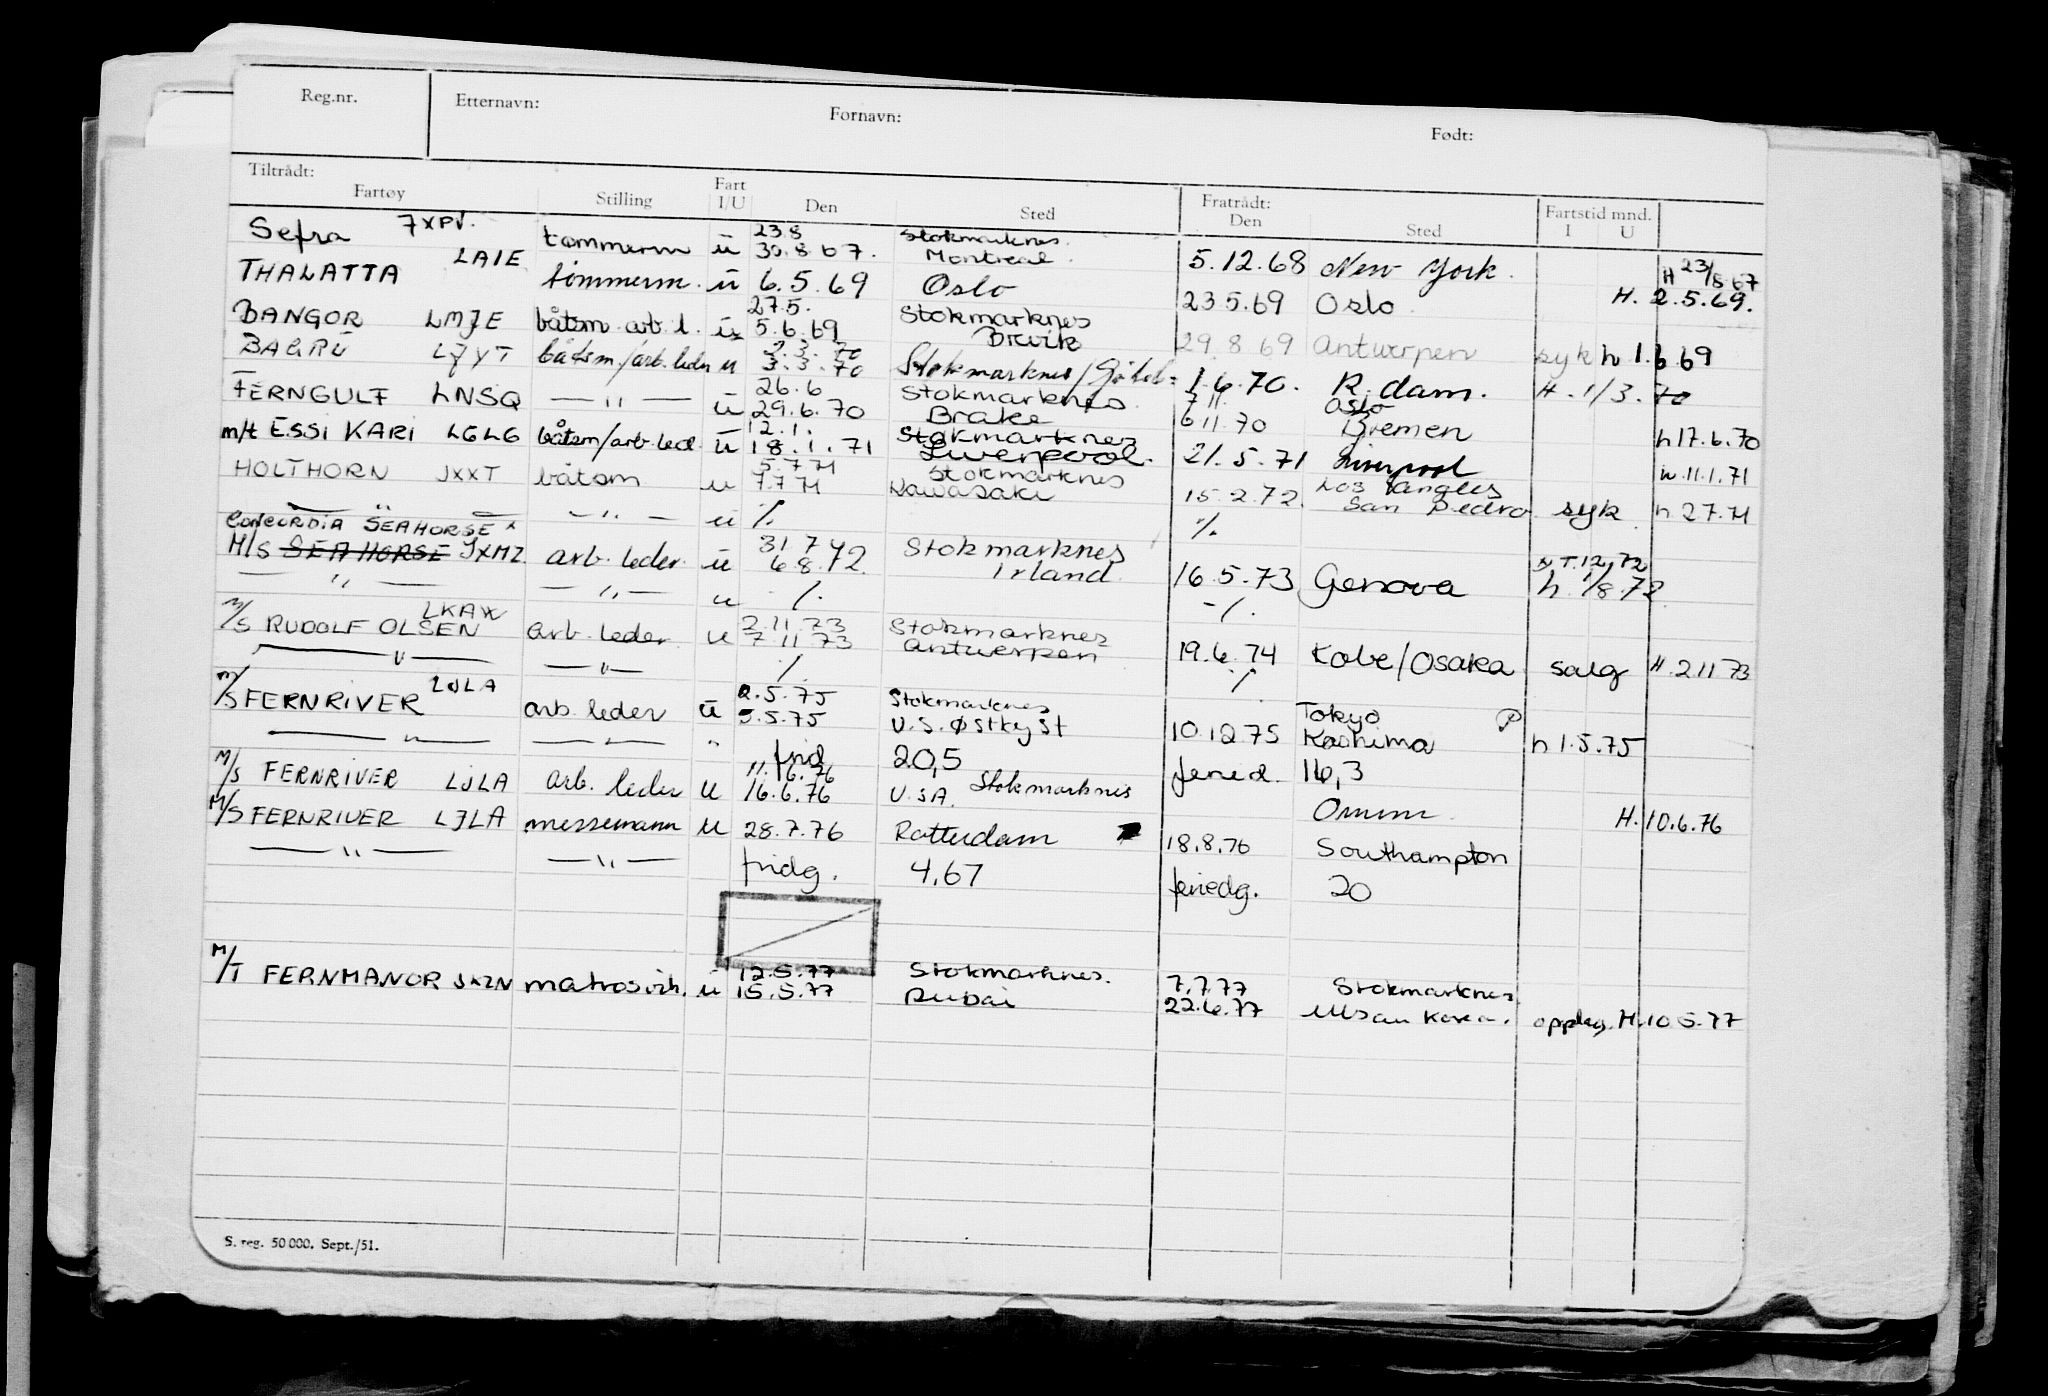 Reg.nr. Etternavn: Fornavn: Født:
Tiltrådt: Fratrådt:
Fartøy Stilling Fart I/U Den Sted Den Sted Fartstid mnd. I U
Sefra 7XPV. tømmerm u 23.8 Stokmarknes. H 23/8 67
30.8.67. Montreal. 5.12.68 New York.
THALATTA LAIE tømmerm. u 6.5.69 Oslo 23.5.69 Oslo H. 2.5.69.
BANGOR LMJE båtsm. arb. l. u 27.5. Stokmarknes
5.6.69 Brevik 29.8.69 Antwerpen syk h 1.6.69
BAGRU LJYT båtsm/arb. leder u 2.3.70
3.3.70 Stokmarknes/ 1.6.70. R.dam. H. 1/3. 70
FERNGULF LNSQ — " — u 26.6 Stokmarknes. 7.11 Oslo
29.6.70 Brake 6.11.70 Bremen h 17.6.70
m/t ESSI KARI LGLG båtsm/arb. led. u 12.1. Stokmarknes
18.1.71 Liverpool. 21.5.71 Liverpool h. 11.1.71
HOLTHORN JXXT båtsm u 5.7.71 Stokmarknes
7.7.71 Kawasaki 15.2.72. Los Angles
San Pedro syk h 2.7.71
— " — — " — u % %
CONCORDIA SEAHORSE
M/S SEAHORSE JXMZ arb. leder u 31 7 72 Stokmarknes
6.8.72. Irland. 16.5.73 Genova h. 1/8.72
— " — — " — u -/. -/.
M/S RUDOLF OLSEN LKAW arb. leder u 2.11.73 Stokmarknes
7.11.73 Antwerpen 19.6.74 Kobe/Osaka salg H. 2.11 73
— " — — " — /. /.
M/S FERNRIVER LJLA arb. leder u 2.5.75 Stokmarknes Tokyo
5.5.75 U.S. Østkyst 10.12.75 Kashima h 1.5.75
— " — — " — " frid 20,5 feried. 16,3
M/S FERNRIVER LJLA arb. leder u 11.6.76 Stokmarknes
16.6.76 U.SA. Omm. H. 10.6.76
M/S FERNRIVER LJLA messemann u 28.7.76 Rotterdam 18.8.76 Southampton
— " — — " — fridg. 4,67 feriedg. 20
M/T FERNMANOR JXZN matros u 12.5.77 Stokmarknes. 7.7.77 Stokmarknes
15.5.77 Dubai 22.6.77 Ulsan Korea. opplag. H. 10 5.77
S. reg. 50 000. Sept./51.